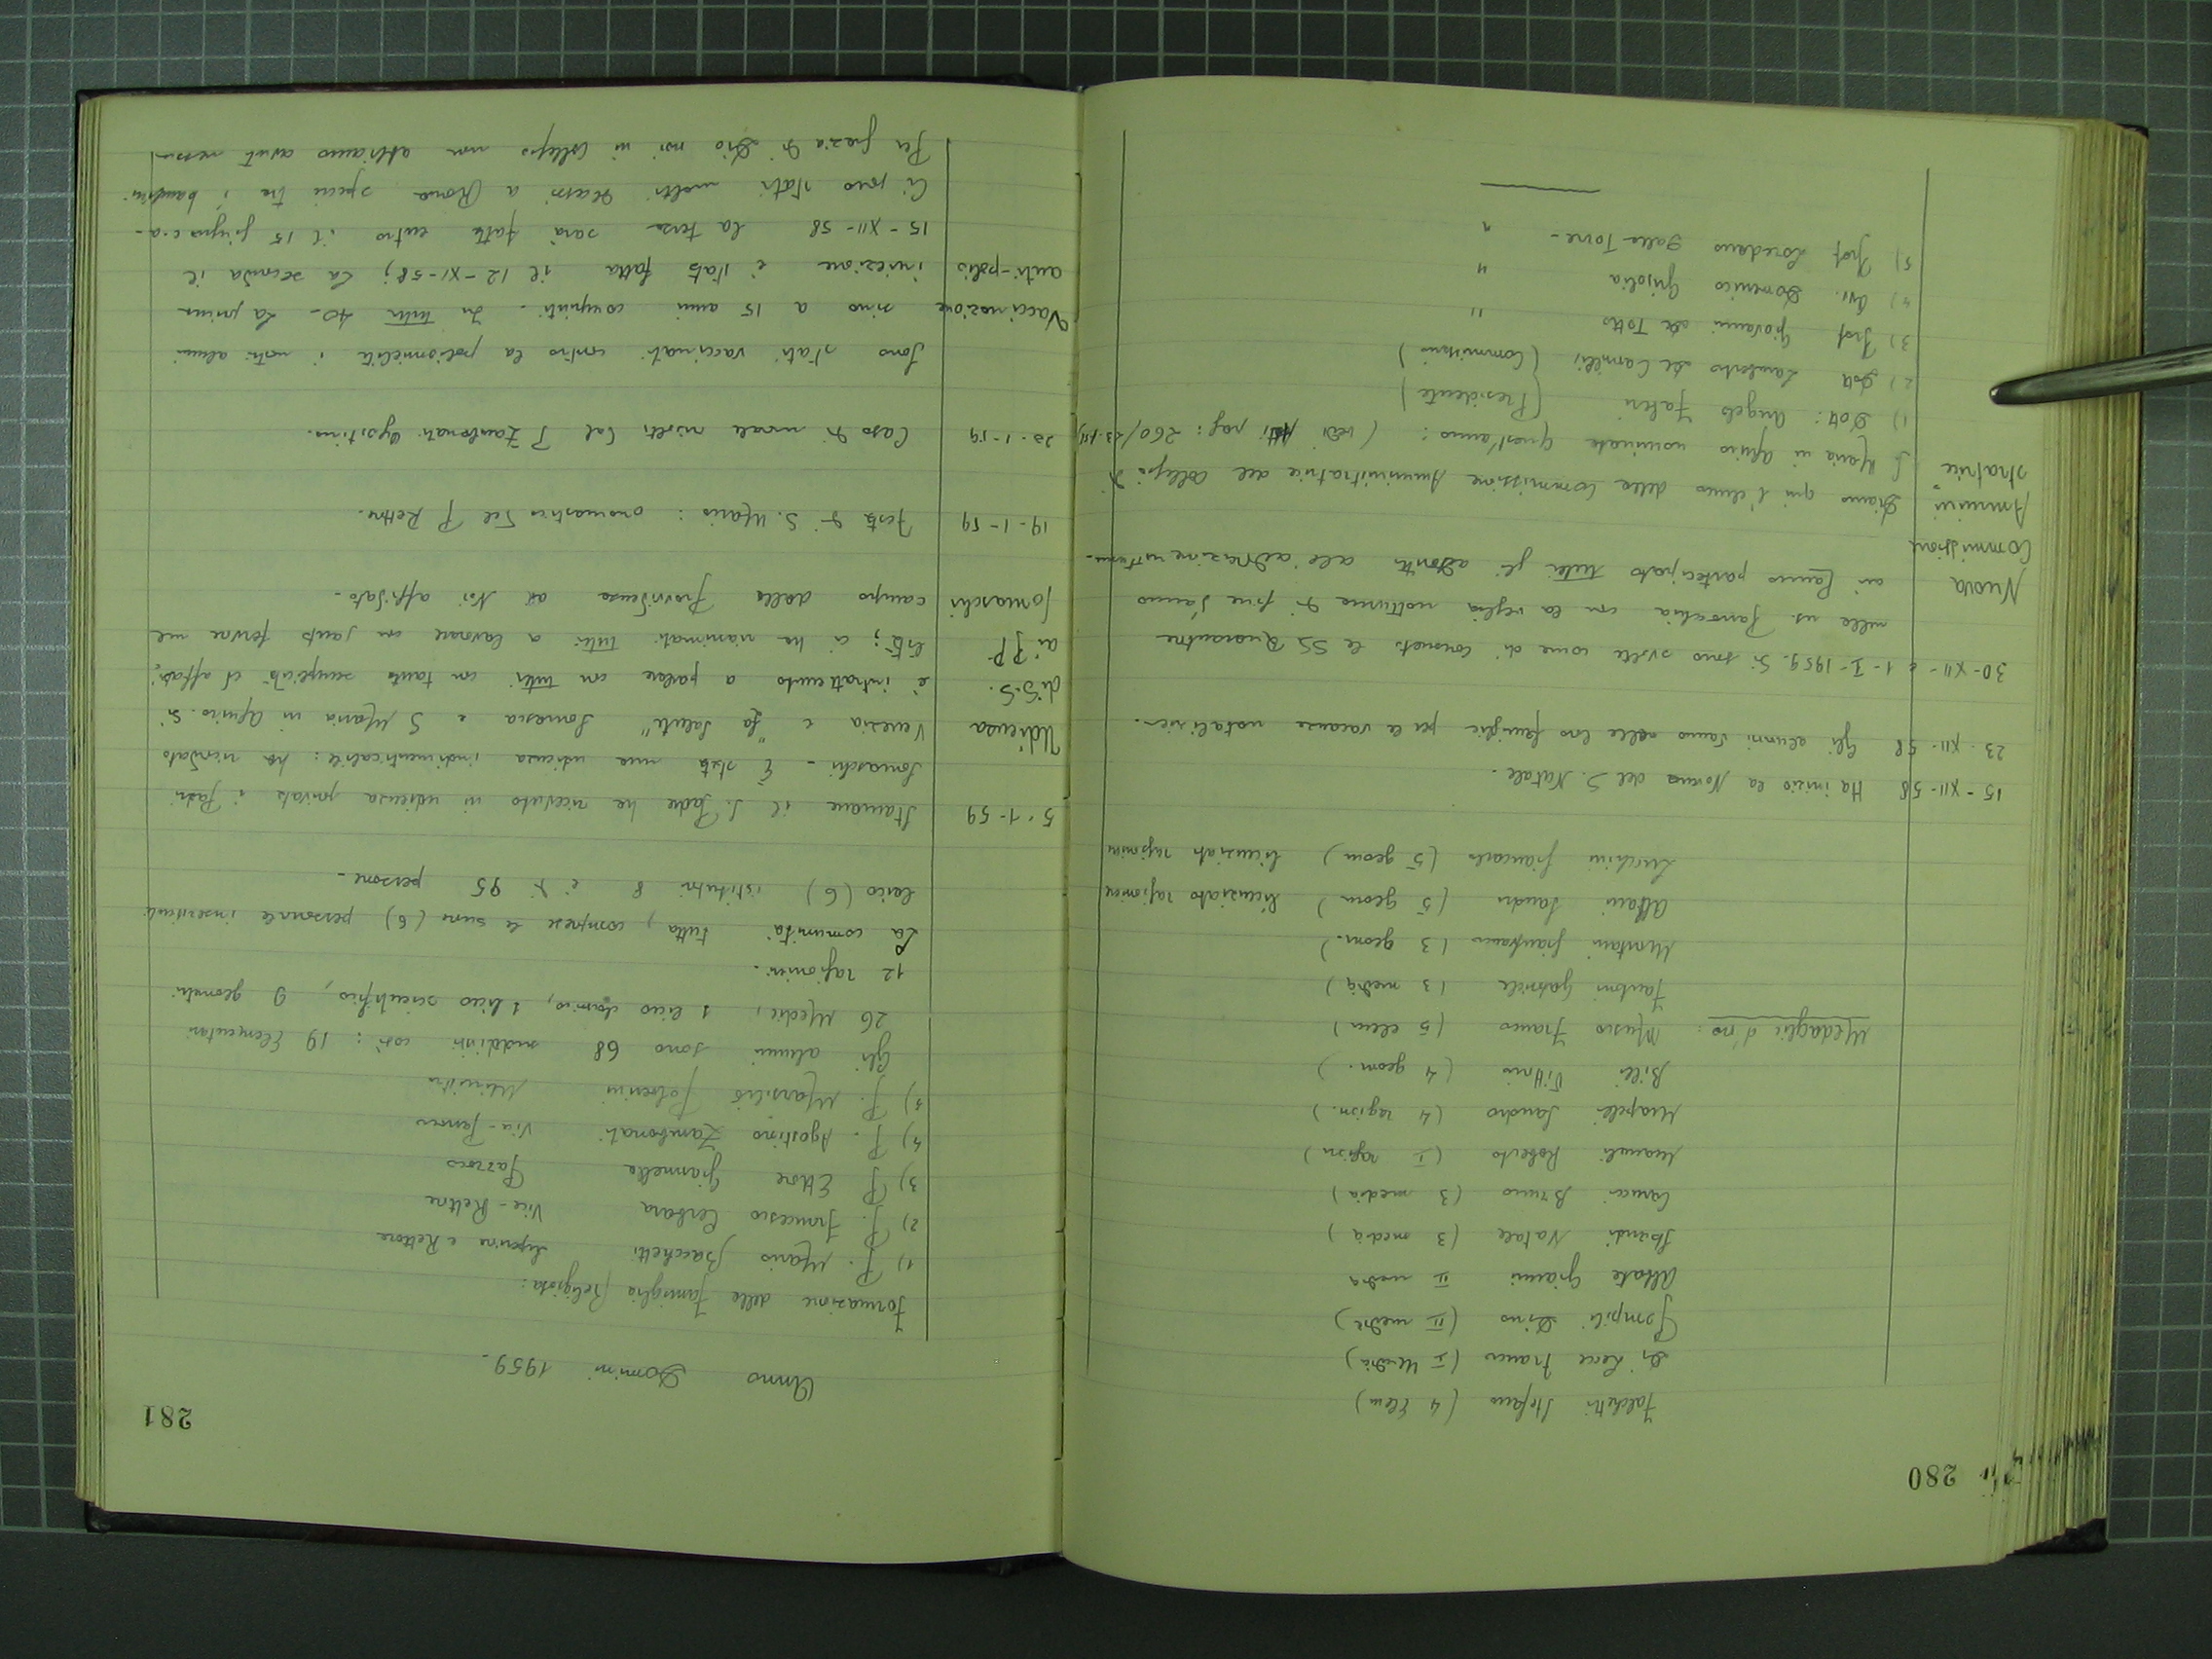 280
Falchetti Stefano (4 Elem)
Di Lecce Franco (I Media)
Pompili Dino (II media)
Abbate Gianni II media
Sbardi Natale (3 media)
Caruci Bruno (3 media)
Manuali Roberto (I ragion)
Mapelli Sandro (4 ragion.)
Billi Vittorio (4 geom.)
Medaglie d'oro: Musio Franco (5 elem)
Fantoni Gabriele (3 media)
Montani Gianfranco (3 geom.)
Albani Sandro (5 geom) licenziato ragioniere
Lucchini Giancarlo (5 geom) licenziato ragioniere
15-XII-58 Ha inizio la Novena del S. Natale.
23-XII-58 Gli alunni vanno nelle loro famiglie per le vacanze natalizie.
30-XII- e 1-I-1959. Si sono svolte come di consueto le SS Quarantore
nella ns. Parrocchia con la veglia notturna di fine d'anno
cui hanno partecipato tutti gli ascritti all'adorazione notturna.
Nuova
Commissione
Amministratrice
Diamo qui l'elenco della Commissione Amministratrice del Collegio di
S. Maria in Aquiro nominata quest'anno: (vedi Atti pag: 260/23.XII)
1) Dott: Angelo Fabri (Presidente)
2) Dott Lamberto De Camillis (Commissario)
3) Prof Giovanni De Totto "
4) Avv. Domenico Grisolia "
5) Prof Loredano Dalla Torre - "
281
Anno Domini 1959.
Formazione della Famiglia Religiosa:
1) P. Mario Bacchetti Superiore e Rettore
2) P. Francesco Cerbara Vice-Rettore
3) P. Ettore Giannella Parroco
4) P. Agostino Zambonati Vice-Parroco
5) P. Marsilio Polverini Ministro
Gli alunni sono 68 suddivisi così: 19 Elementari
26 Medie, 1 liceo classico, 1 liceo scientifico, 9 geometri
12 ragionieri.
La comunità tutta, comprese le suore (6) personale inserviente
laico (6) istitutori 8 è di 95 persone.
5-1-59 Stamane il S. Padre ha ricevuto in udienza privata i Padri
Somaschi - È stata una udienza indimenticabile: ha ricordato
Udienza Venezia e "La Salute" Somasca e S Maria in Aquiro. Si
di S.S. è intrattenuto a parlare con tutti con tanta semplicità ed affabi-
ai PP. lità; ci ha rianimati tutti a lavorare con santo fervore nel
Somaschi campo dalla Provvidenza a Noi affidato.
19-1-59 Festa di S. Mario: onomastico del P Rettore.
20-1-59 Caso di morale risolti dal P Zambonati Agostino.
Sono stati vaccinati contro la poliomielite i nostri alunni
Vaccinazione sino a 15 anni compiuti. In tutti 40. La prima
anti-polio iniezione è stata fatta il 12-XI-58; la seconda il
15-XII-58 la terza sarà fatta entro il 15 giugno c.a.
Ci sono stati molti decessi a Roma specie tra i bambini.
Per grazia di Dio noi in Collegio non abbiamo avuto nessun